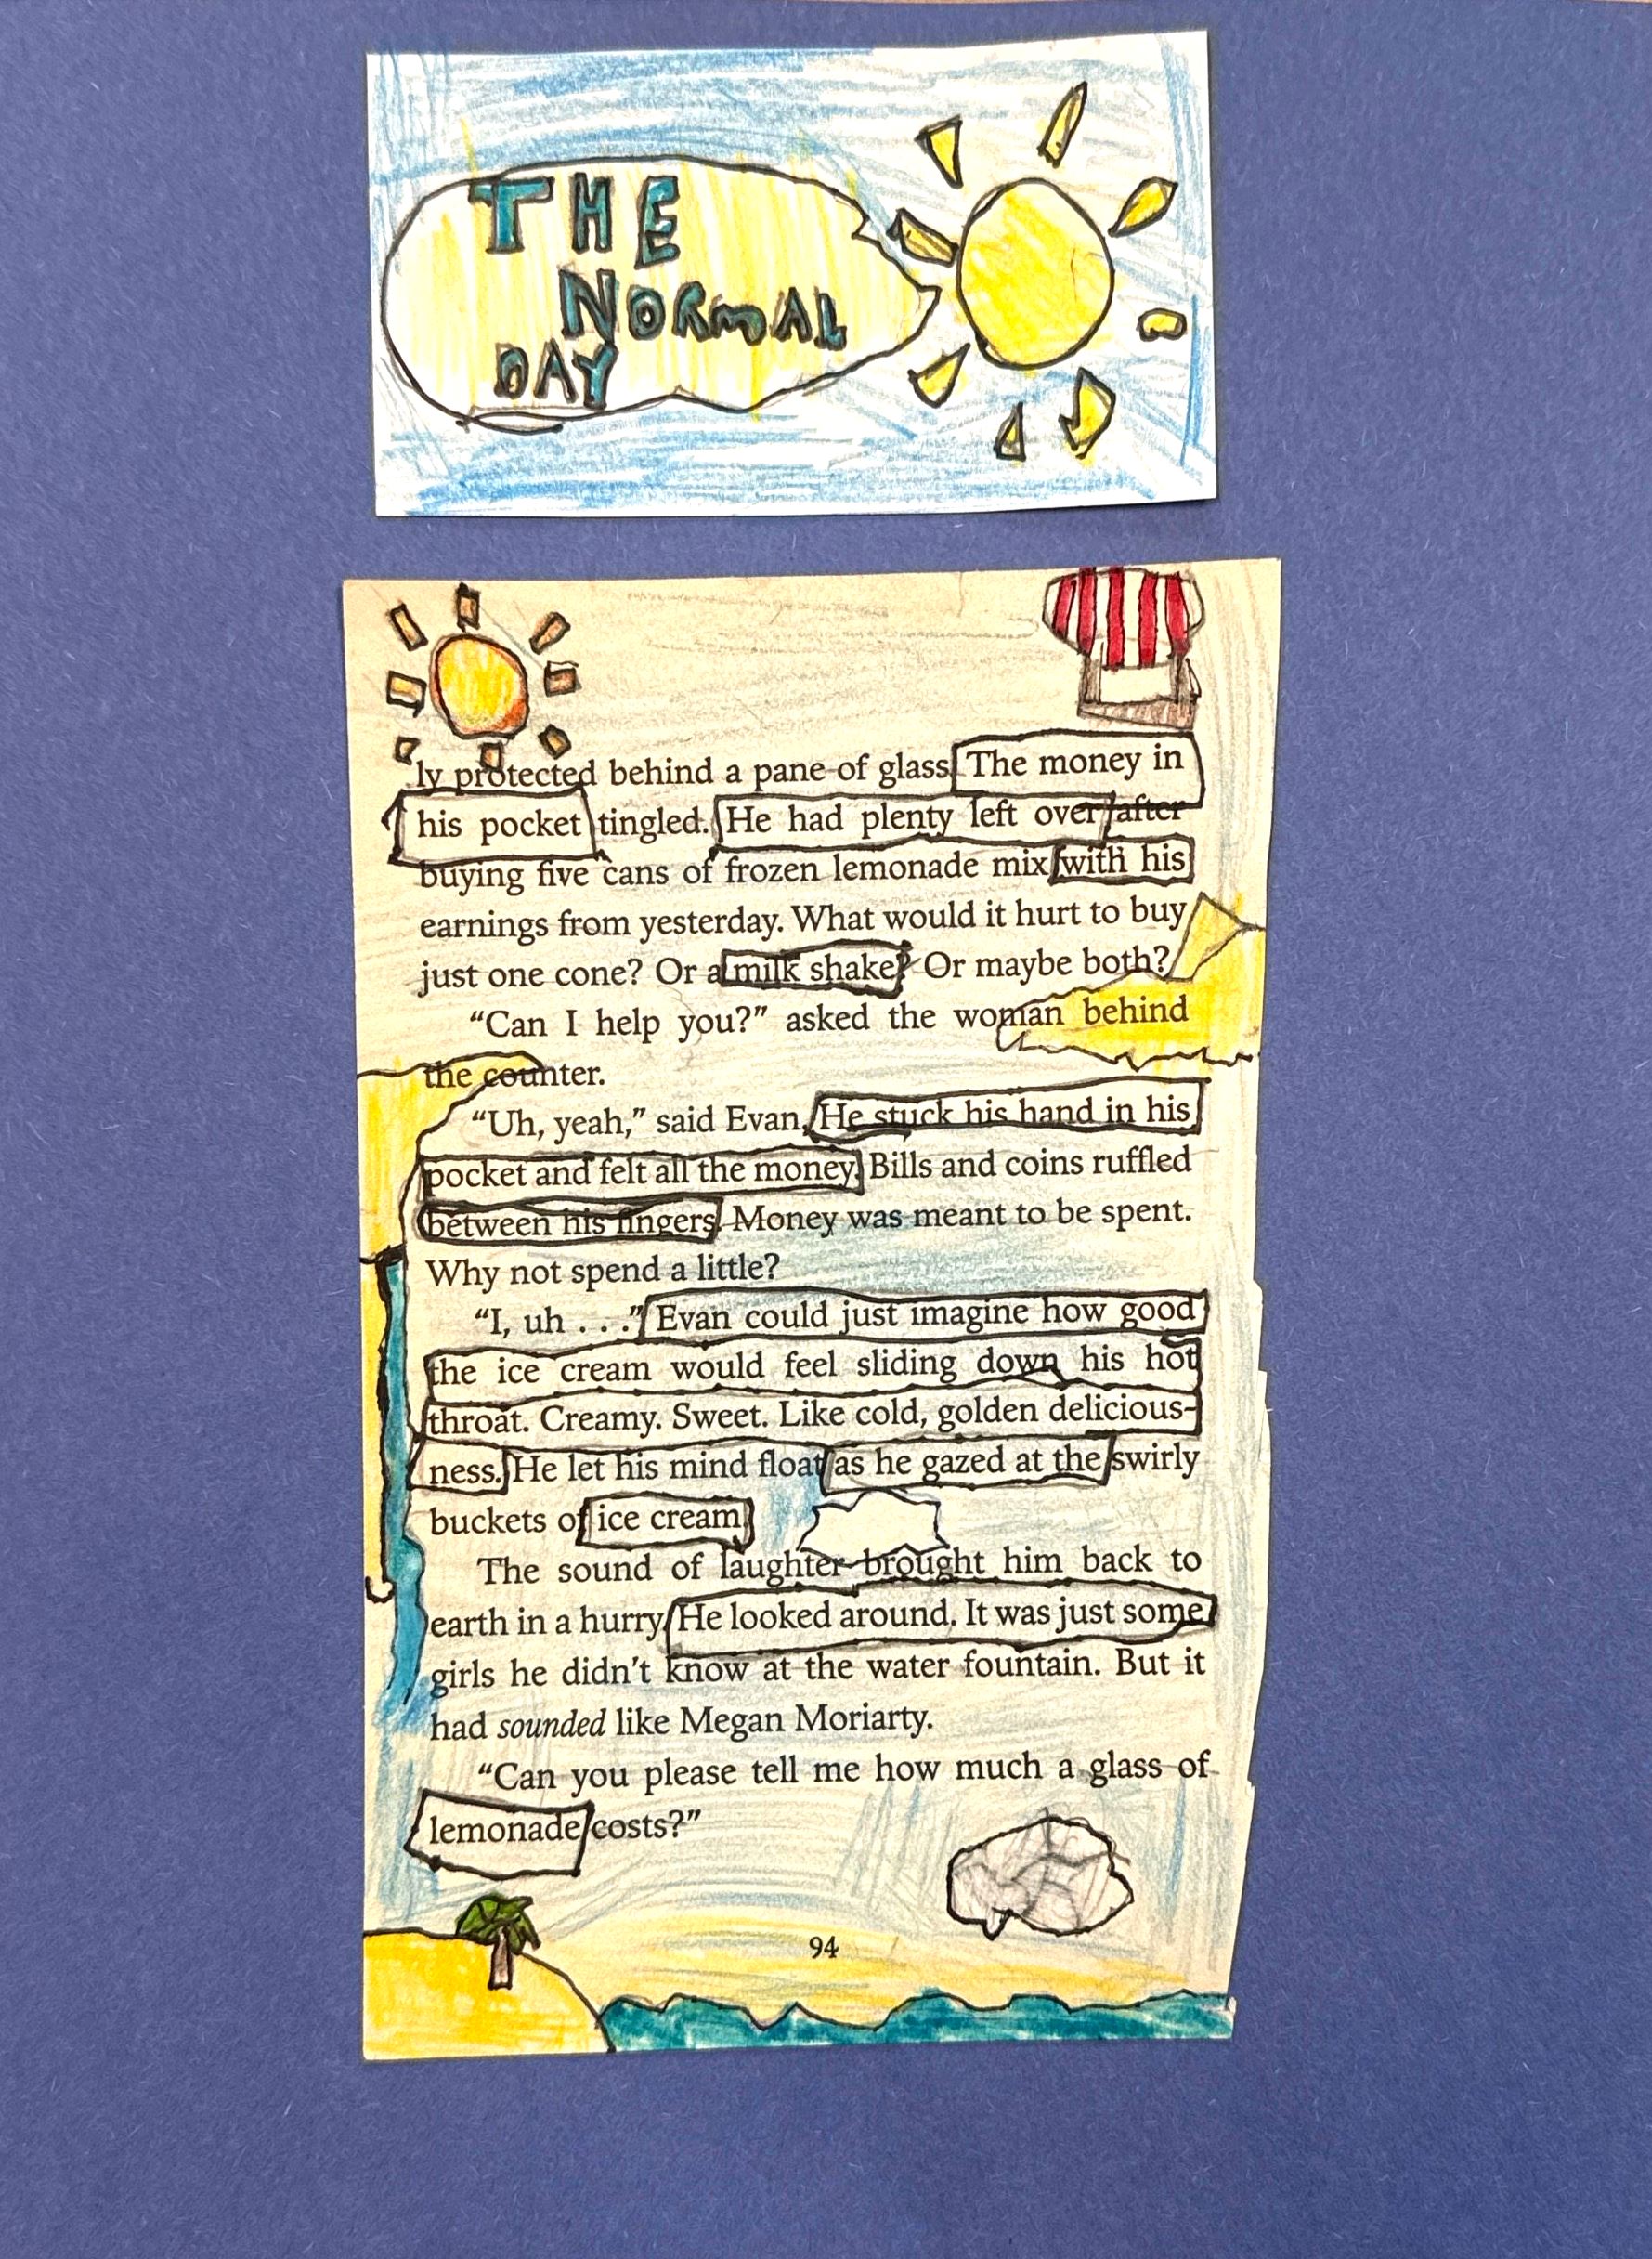 THE
NORMAL
DAY
ly protected behind a pane of glass. The money in
his pocket tingled. He had plenty left over after
buying five cans of frozen lemonade mix with his
earnings from yesterday. What would it hurt to buy
just one cone? Or a milk shake? Or maybe both?
“Can I help you?” asked the woman behind
the counter.
“Uh, yeah,” said Evan. He stuck his hand in his
pocket and felt all the money. Bills and coins ruffled
between his fingers. Money was meant to be spent.
Why not spend a little?
“I, uh . . .” Evan could just imagine how good
the ice cream would feel sliding down his hot
throat. Creamy. Sweet. Like cold, golden delicious-
ness. He let his mind float as he gazed at the swirly
buckets of ice cream.
The sound of laughter brought him back to
earth in a hurry. He looked around. It was just some
girls he didn’t know at the water fountain. But it
had sounded like Megan Moriarty.
“Can you please tell me how much a glass of
lemonade costs?”
94